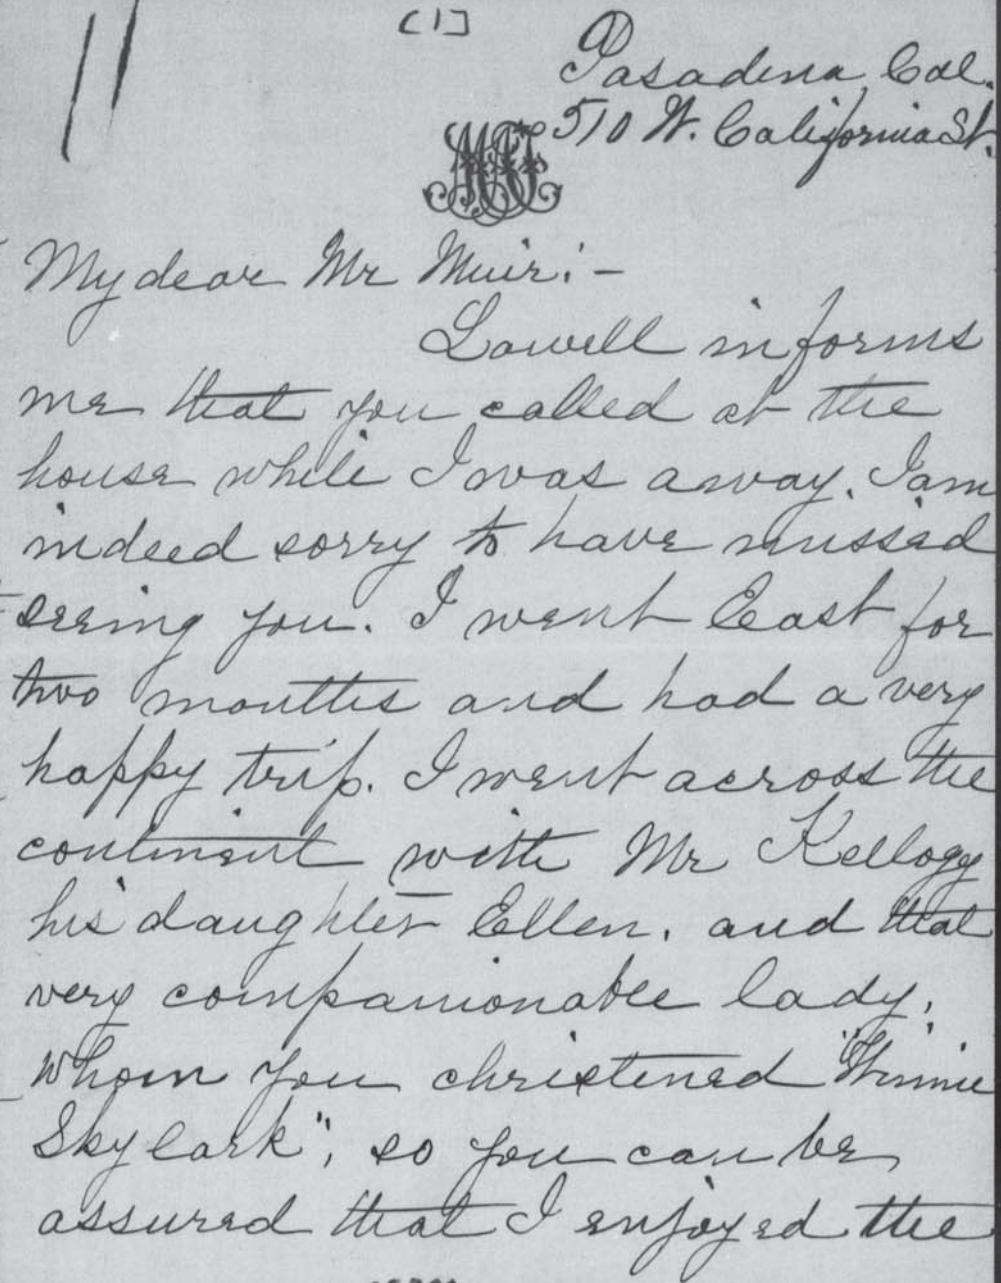 [1]
Pasadena Cal.
510 W. California St.
My dear Mr Muir:-
Lowell informs
me that you called at the
house while I was away. I am
indeed sorry to have missed
seeing you. I went East for
two months and had a very
happy trip. I went across the
continent with Mr Kellogg
his daughter Ellen. and that
very companionable lady,
whom you christened "Winnie
Skylark", so you can be
assured that I enjoyed the